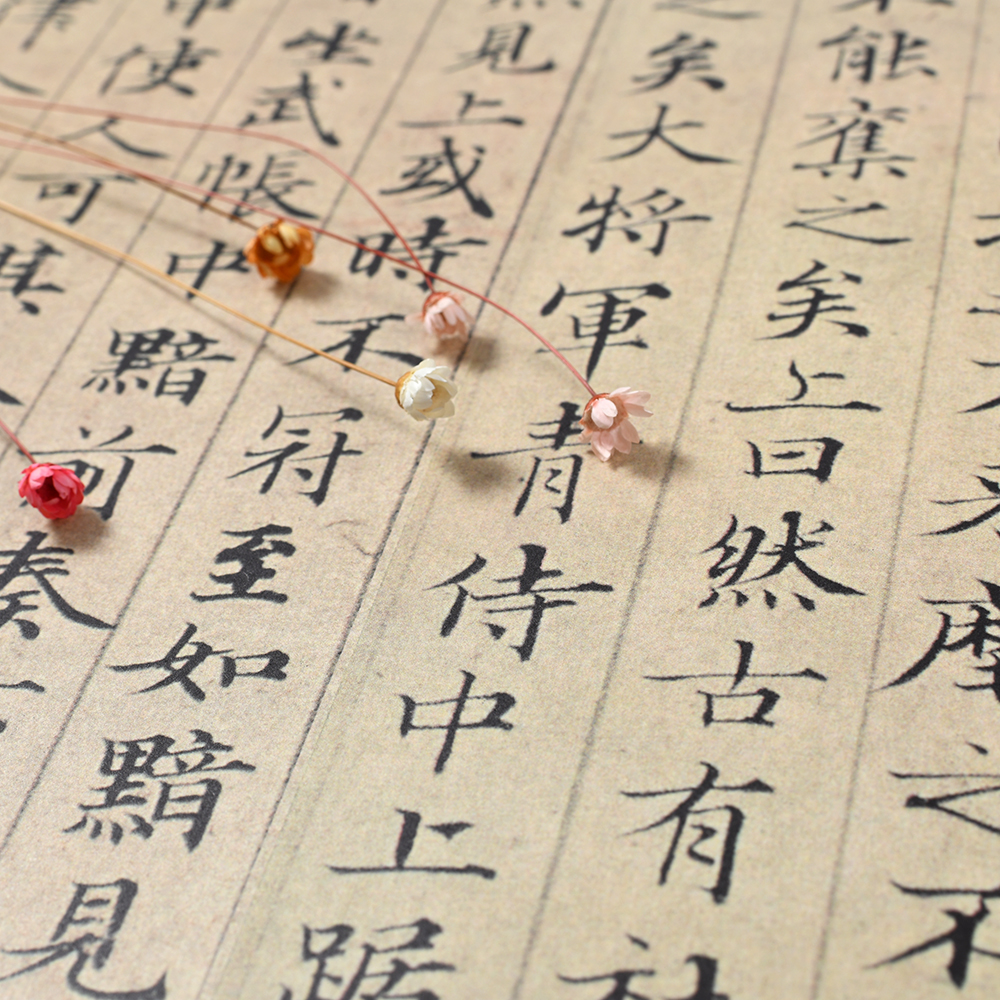 麾之不
能奪之矣上曰然古有社
之矣大將軍青侍中上踞
見上或時不冠至如黯見
坐武帳中黯前奏
使人可其